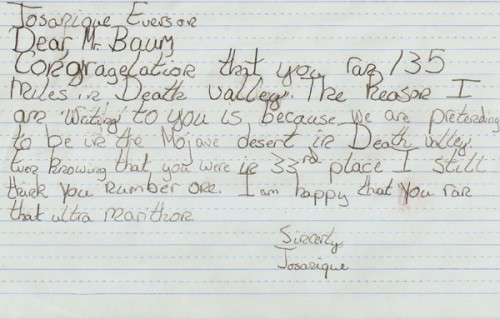 Josanique Everson
Dear Mr. Baum
Congragelation that you ran 135
miles in Death Valley. The Reason I
am writing to you is because we are pretending
to be in the Mojave desert in Death Valley.
Even knowing that you were in 33rd place I still
think you number one. I am happy that you ran
that ultra marithon
Sincerly
Josanique